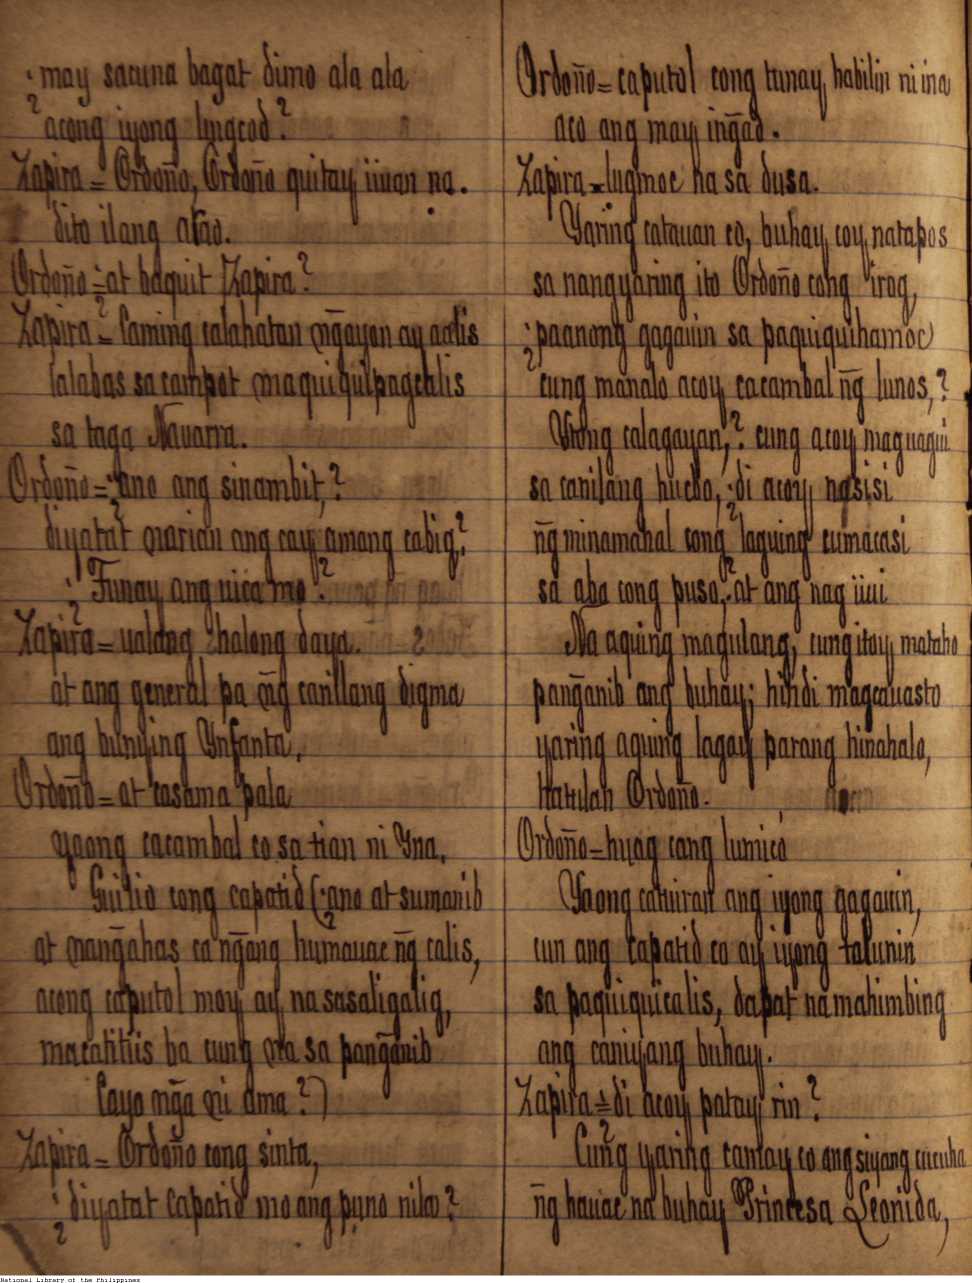 ¿may sacuna bagat dimo ala ala
acong iyong lingcod?
Zapira = Ordoño, Ordoño quitay iiuan na.
dito ilang arao.
Ordoño = at baquit Zapira?
Zapira = Caming calahatan ñgayon ay aalis
lalabas sa campot maquiquipagcalis
sa taga Navarra.
Ordoño = ¿ano ang sinambit,?
diyatat narian ang cay amang cabig?
¿Tunay ang uica mo?
Zapira = ualang halong daya.
at ang general pa ñg canilang digma
ang bunying Ynfanta,
Ordoño = at casama pala
yaong cacambal co sa tian ni Yna,
Guilio cong capatid (¿ano at sumanib
at nangahas ca ñgang humauac ñg calis,
acong caputol moy ay na sasaligalig,
macatitiis ba cung na sa pang̃anib
Cayo mg̃a ni ama?)
Zapira = Ordoño cong sinta,
¿diyatat capatid mo ang puno nila?
Ordoño = caputol cong tunay habilin ni ina
aco ang may ing̃ad.
Zapira = lugmoc na sa dusa.
Yaring catauan co, buhay coy natapos
sa nangyaring ito Ordoño cong irog,
¿paanong gagauin sa paquiquihamoc
cung manalo acoy cacambal ñg lunos,?
Uong calagayan,? cung acoy maguagui
sa canilang hucbo, ¿di acoy ng̃sisi
ñg minamahal cong laguing cumacasi
sa aba cong puso,? at ang nag iiui
Na aquing magulang, cung itoy mataho
pang̃anib ang buhay; hindi magcauasto
yaring aquing lagay parang hinahalo,
hatulan Ordoño.
Ordoño = huag cang lumicó
Yaong catuiran ang iyong gagauin,
cun ang capatid co ay iyong talunin
sa paquiquicalis, dapat na mahimbing
ang caniyang buhay.
Zapira = ¿di acoy patay rin?
Cung yaring camay co ang siyang cucuha
ñg hauac na buhay Princesa Leonida,
National Library of the Philippines